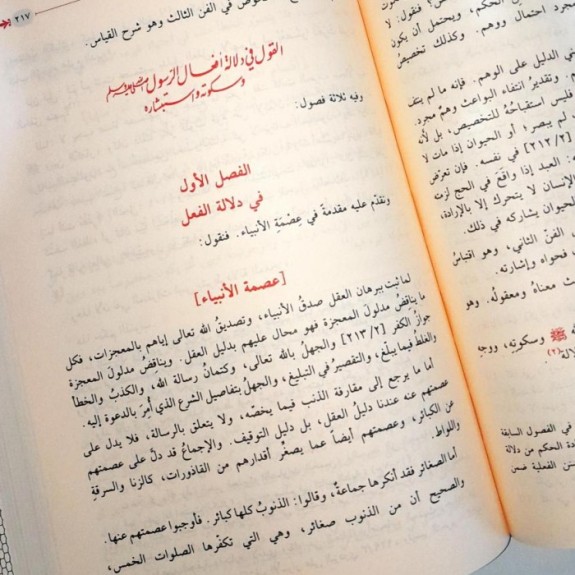 ٢١٧
في الفن الثالث وهو شرح القياس.
القول في دلالة أفعال الرسول صلى الله عليه وسلم
وسكوته واستبشاره
وفيه ثلاثة فصول:
الفصل الأول
في دلالة الفعل
ونقدّم عليه مقدمةً في عِصْمَةِ الأنبياء. فنقول:
[عصمة الأنبياء]
لما ثبت ببرهان العقل صدقُ الأنبياء، وتصديقُ الله تعالى إياهم بالمعجزات، فكل
ما يناقضُ مدلولَ المعجزة فهو محال عليهم بدليل العقل. ويناقضُ مدلولَ المعجزة
جوازُ الكفر [٢١٣/٢] والجهلُ بالله تعالى، وكتمانُ رسالة الله، والكذبُ والخطأ
والغلط فيما يبلّغ، والتقصيرُ في التبليغ، والجهلُ بتفاصيل الشرع الذي أُمِرَ بالدعوة إليه.
أما ما يرجع إلى مقارفة الذنب فيما يخصّه، ولا يتعلق بالرسالة، فلا يدل على
عصمتهم عنه عندنا دليلُ العقل، بل دليل التوقيف. والإجماعُ قد دلّ على عصمتهم
عن الكبائر، وعصمتهم أيضاً عما يصغّر أقدارهم من القاذورات، كالزنا والسرقةِ
واللواط.
أما الصغائر فقد أنكرها جماعةٌ، وقالوا: الذنوبُ كلها كبائر. فأوجبوا عصمتهم عنها.
والصحيح أن من الذنوب صغائر، وهي التي تكفّرها الصلوات الخمس،
فنقول: لا
الحكم، ويحتمل أن يكون
مجرد احتمال ووهم. وكذلك تخصيص
في الدليل على الوهم. فإنه ما لم ينتف
وتقديرُ انتفاء البواعث وهمٌ مجرد.
فليس استقباحُهُ للتخصيص، بل لأنه
لم يبصر، أو الحيوان إذا مات لا
[٢١٢/٢] في نفسه. فإن تعرّض
العبد إذا واقَعَ في الحج لزمت
الإنسان لا يتحرك إلا بالإرادة،
الحيوان يشاركه في ذلك.
الفنّ الثاني، وهو اقتباسُ
فحواه وإشارته.
معناه ومعقولُه. وهو
ﷺ وسكوتِه، ووجه
(٢).
في الفصول السابقة
الحكم من دلالة
الفعلية ضمن